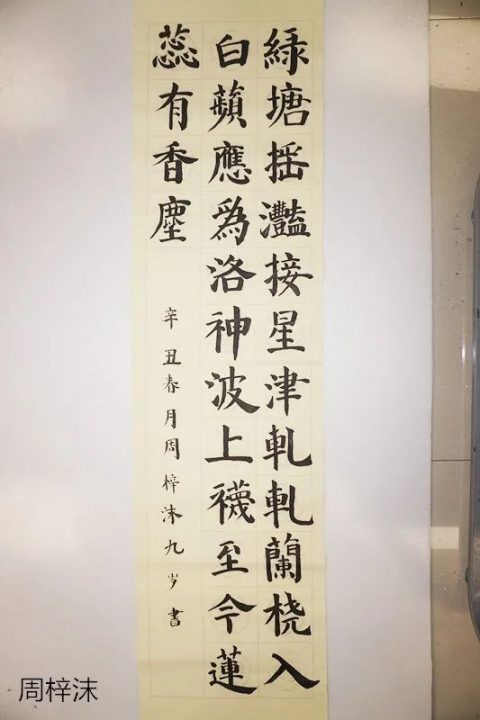 緑塘揺灩接星津軋軋蘭桡入
白蘋應爲洛神波上襪至今蓮
蕊有香塵
辛丑春月周梓沫九岁書
周梓沫